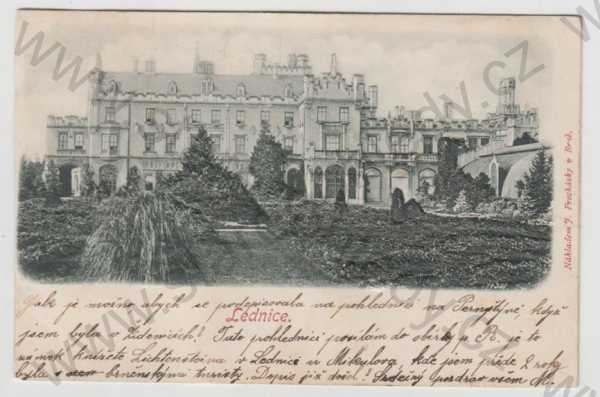 Lednice.
Nákladem J. Procházky v Brně.
Jak je možno abych se podepisovala na pohlednici na Pernštýně když
jsem byla v Židenicích! Tuto pohlednici posílám do sbírky u R. je to
zámek knížete Lichtenšteina v Lednici u Mikulova, kde jsem přede 2 roky
byla s brněnskými turisty. Dopis již došel! Srdečný pozdrav všem M.